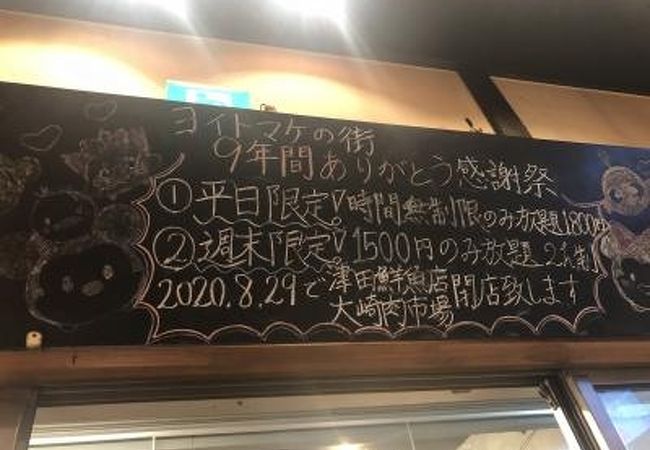 ヨイトマケの街
9年間ありがとう感謝祭
①平日限定!時間無制限のみ放題1800円
②週末限定!1500円のみ放題2h制
2020.8.29で津田鮮魚店
大崎肉市場
閉店致します